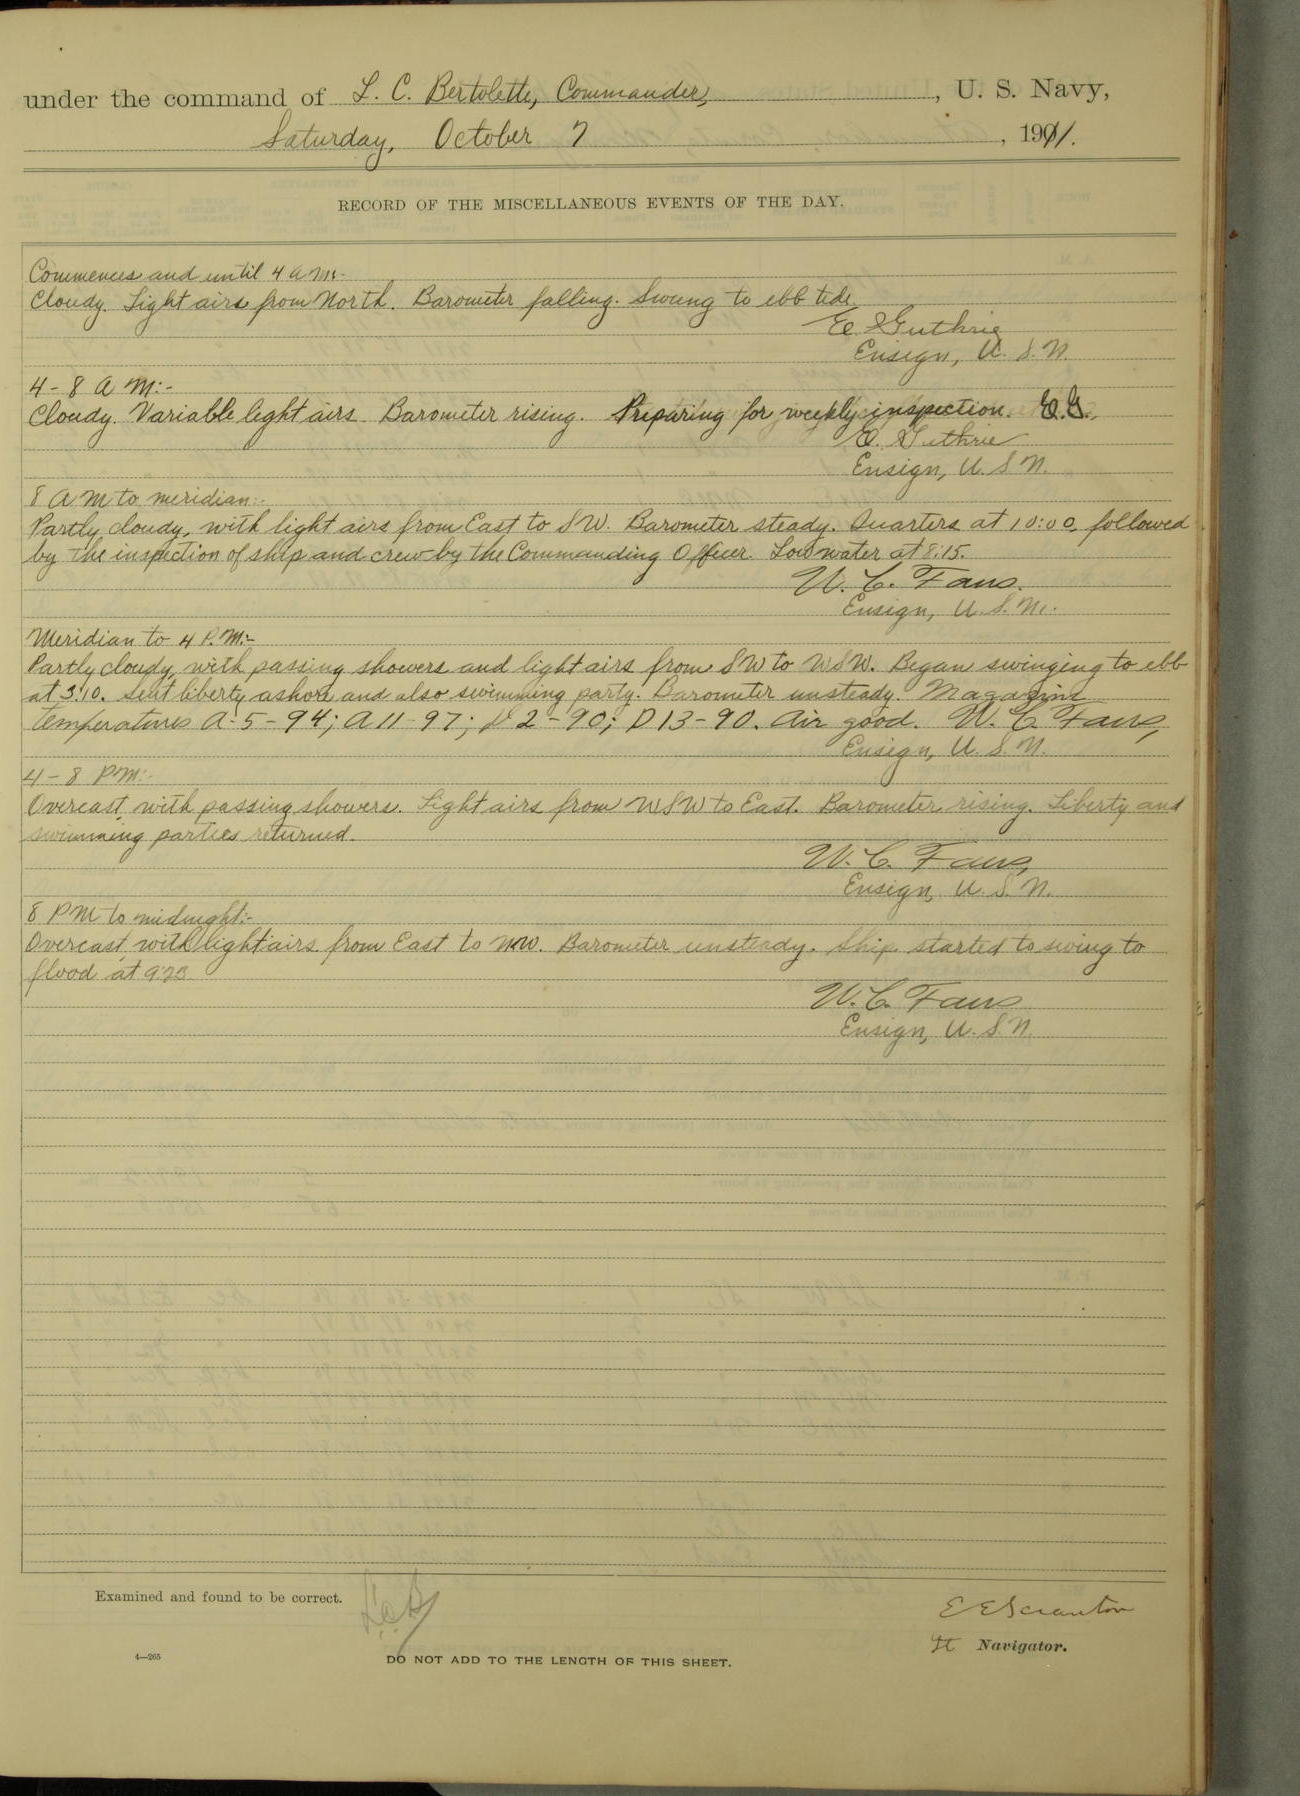 under the command of L. C. Bertolette, Commander, , U. S. Navy,
Saturday, October 7 , 1911.
RECORD OF THE MISCELLANEOUS EVENTS OF THE DAY.
Commences and until 4 a m:-
Cloudy. Light airs from North. Barometer falling. Swung to ebb tide.
E. Guthrie
Ensign, U. S. N.
4-8 A M:-
Cloudy. Variable light airs. Barometer rising. Preparing for weekly inspection. E.G.
E. Guthrie
Ensign, U. S. N.
8 A M to meridian:-
Partly cloudy, with light airs from East to SW. Barometer steady. Quarters at 10:00, followed
by the inspection of ship and crew by the Commanding Officer. Low water at 8:15.
W. C. Faus.
Ensign, U. S. N.
Meridian to 4 P.M:-
Partly cloudy, with passing showers and light airs from SW to WSW. Began swinging to ebb
at 3:10. Sent liberty ashore and also swimming party. Barometer unsteady. Magazine
temperatures A-5-94; A11-97; D 2-90; D13-90. Air good. W. C. Faus,
Ensign, U. S. N.
4-8 PM:-
Overcast, with passing showers. Light airs from WSW to East. Barometer rising. Liberty and
swimming parties returned.
W. C. Faus,
Ensign, U. S. N.
8 PM to midnight:-
Overcast, with light airs from East to NW. Barometer unsteady. Ship started to swing to
flood at 9:23
W. C. Faus
Ensign, U. S. N.
Examined and found to be correct. L.C.B.
E E Scranton
Lt Navigator.
4—265
DO NOT ADD TO THE LENGTH OF THIS SHEET.